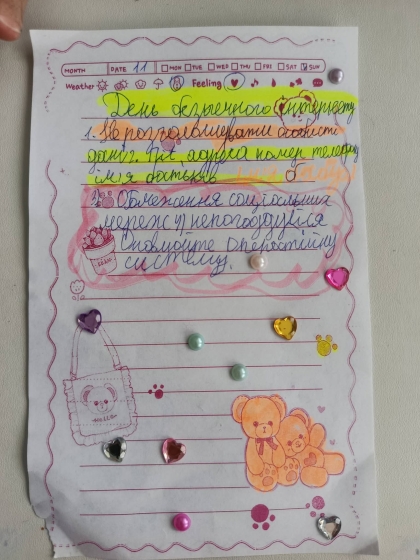 MONTH DATE 11 MON TUE WED THU FRI SAT SUN
Weather Feeling
День безпечного інтернету
1. Не розголошувати особисті
дані: адреса номер телефону
імя батьків
2. Обмеження соціальних
мереж
Оновлюйте операційну
систему.
HELLO